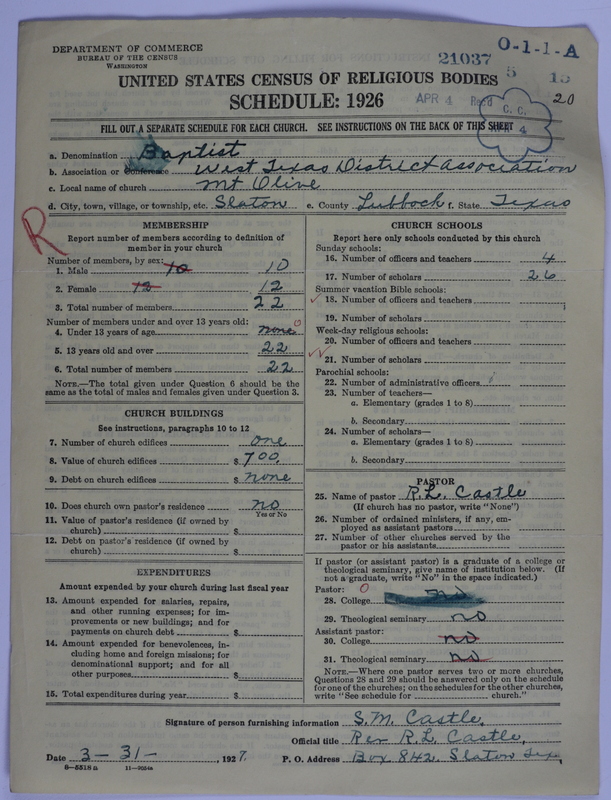 DEPARTMENT OF COMMERCE
BUREAU OF THE CENSUS
WASHINGTON
21037
O-1-1-A
5 13
20
UNITED STATES CENSUS OF RELIGIOUS BODIES
SCHEDULE: 1926
APR 4 Rec'd
C. C.
4
FILL OUT A SEPARATE SCHEDULE FOR EACH CHURCH. SEE INSTRUCTIONS ON THE BACK OF THIS SHEET
a. Denomination Baptist
b. Association or Conference West Texas District Association
c. Local name of church Mt Olive
d. City, town, village, or township, etc. Slaton e. County Lubbock f. State Texas
R
MEMBERSHIP
Report number of members according to definition of
member in your church
Number of members, by sex:
1. Male 10 10
2. Female 12 12
3. Total number of members 22
Number of members under and over 13 years old:
4. Under 13 years of age none 0
5. 13 years old and over 22
6. Total number of members 22
NOTE.—The total given under Question 6 should be
same as the total of males and females given under Question 3.
CHURCH BUILDINGS
See instructions, paragraphs 10 to 12
7. Number of church edifices one
8. Value of church edifices $ 700.
9. Debt on church edifices $ none
10. Does church own pastor's residence no
Yes or No
11. Value of pastor's residence (if owned by
church) $
12. Debt on pastor's residence (if owned by
church) $
EXPENDITURES
Amount expended by your church during last fiscal year
13. Amount expended for salaries, repairs,
and other running expenses; for im-
provements or new buildings; and for
payments on church debt $
14. Amount expended for benevolences, in-
cluding home and foreign missions; for
denominational support; and for all
other purposes $
15. Total expenditures during year $
CHURCH SCHOOLS
Report here only schools conducted by this church
Sunday schools:
16. Number of officers and teachers 4
17. Number of scholars 26
Summer vacation Bible schools:
18. Number of officers and teachers
19. Number of scholars
Week-day religious schools:
20. Number of officers and teachers
21. Number of scholars
Parochial schools:
22. Number of administrative officers
23. Number of teachers—
a. Elementary (grades 1 to 8)
b. Secondary
24. Number of scholars—
a. Elementary (grades 1 to 8)
b. Secondary
PASTOR
25. Name of pastor R.L. Castle
(If church has no pastor, write "None")
26. Number of ordained ministers, if any, em-
ployed as assistant pastors
27. Number of other churches served by the
pastor or his assistants
If pastor (or assistant pastor) is a graduate of a college or
theological seminary, give name of institution below. (If
not a graduate, write "No" in the space indicated.)
Pastor: 0
28. College no
29. Theological seminary no
Assistant pastor:
30. College no
31. Theological seminary no
NOTE.—Where one pastor serves two or more churches,
Questions 28 and 29 should be answered only on the schedule
for one of the churches; on the schedules for the other churches,
write "See schedule for church."
Signature of person furnishing information S.M. Castle.
Official title Rev R.L. Castle
Date 3-31-, 1927. P. O. Address Box 842. Slaton Tex,
8-5518a 11-9554a